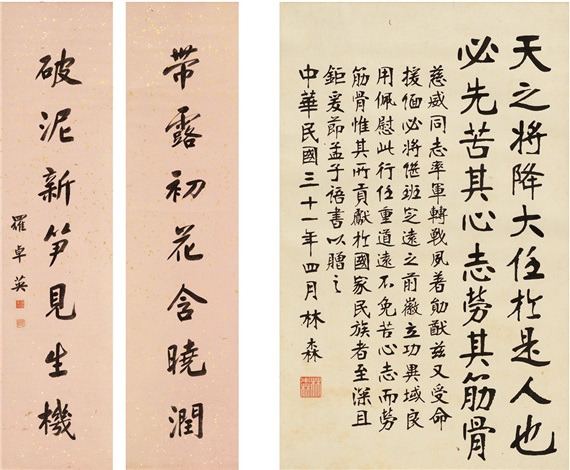 天之將降大任於是人也
必先苦其心志勞其筋骨
慈威同志率軍轉戰夙著勛猷茲又受命
援緬必將繼班定遠之前徽立功異域良
用佩慰此行任重道遠不免苦心志而勞
筋骨惟其所貢獻於國家民族者至深且
鉅爰節孟子語書以贈之
中華民國三十一年四月 林森
帶露初花含曉潤
破泥新笋見生機
羅卓英